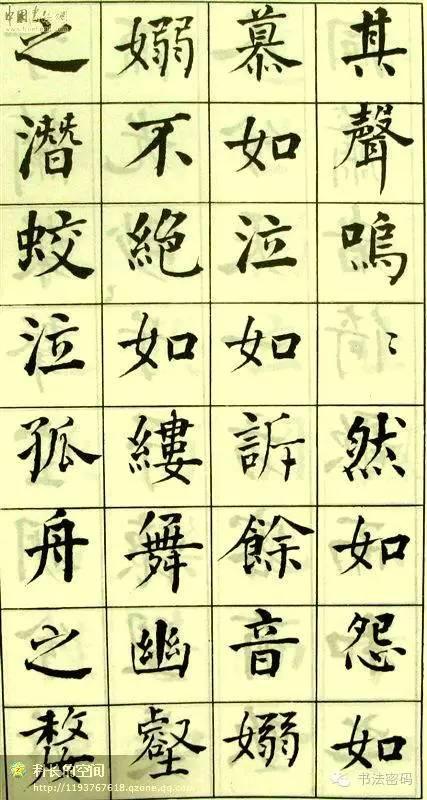 其聲嗚〻然如怨如
慕如泣如訴餘音嫋
嫋不絶如縷舞幽壑
之潛蛟泣孤舟之嫠
科长的空间
http://1193767618.qzone.qq.com
书法密码